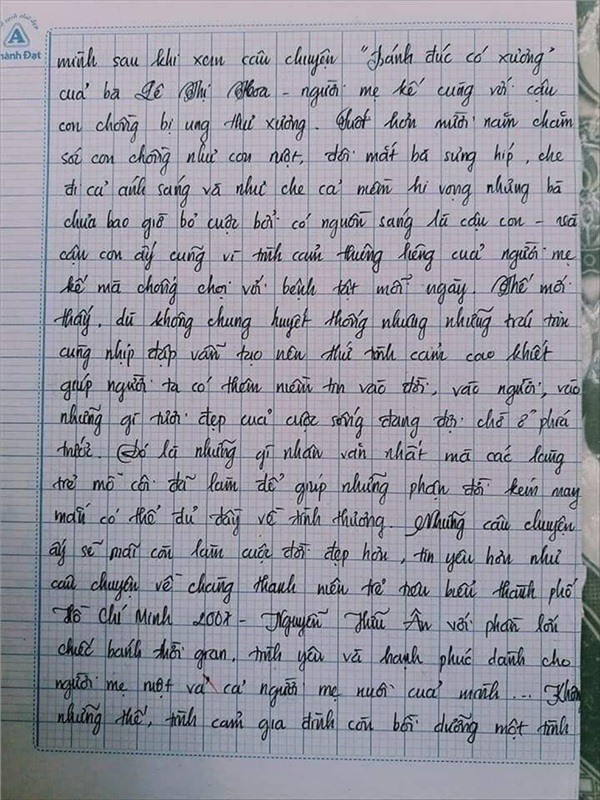 A
hành Đạt
mình sau khi xem câu chuyện "Bánh đúc có xương"
của bà Lê Thị Hoa - người mẹ kế cùng với cậu
con chồng bị ung thư xương. Suốt hơn mười năm chăm
sóc con chồng như con ruột, đôi mắt bà sưng híp, che
đi cả ánh sáng và như che cả niềm hi vọng nhưng bà
chưa bao giờ bỏ cuộc bởi có nguồn sáng là cậu con - mà
cậu con ấy cũng vì tình cảm thiêng liêng của người mẹ
kế mà chống chọi với bệnh tật mỗi ngày. Thế mới
thấy, dù không chung huyết thống nhưng những trái tim
cùng nhịp đập vẫn tạo nên thứ tình cảm cao khiết
giúp người ta có thêm niềm tin vào đời, vào người, vào
những gì tươi đẹp của cuộc sống đang đợi chờ ở phía
trước. Đó là những gì nhân văn nhất mà các làng
trẻ mồ côi đã làm để giúp những phận đời kém may
mắn có thể đủ đầy về tình thương. Những câu chuyện
ấy sẽ mãi còn làm cuộc đời đẹp hơn, tin yêu hơn như
câu chuyện về chàng thanh niên trẻ tiêu biểu thành phố
Hồ Chí Minh 2007 - Nguyễn Hữu Ân với phân lời
chiếc bánh thời gian, tình yêu và hạnh phúc dành cho
người mẹ ruột và cả người mẹ nuôi của mình... Khôn
những thế, tình cảm gia đình còn bồi dưỡng một tình